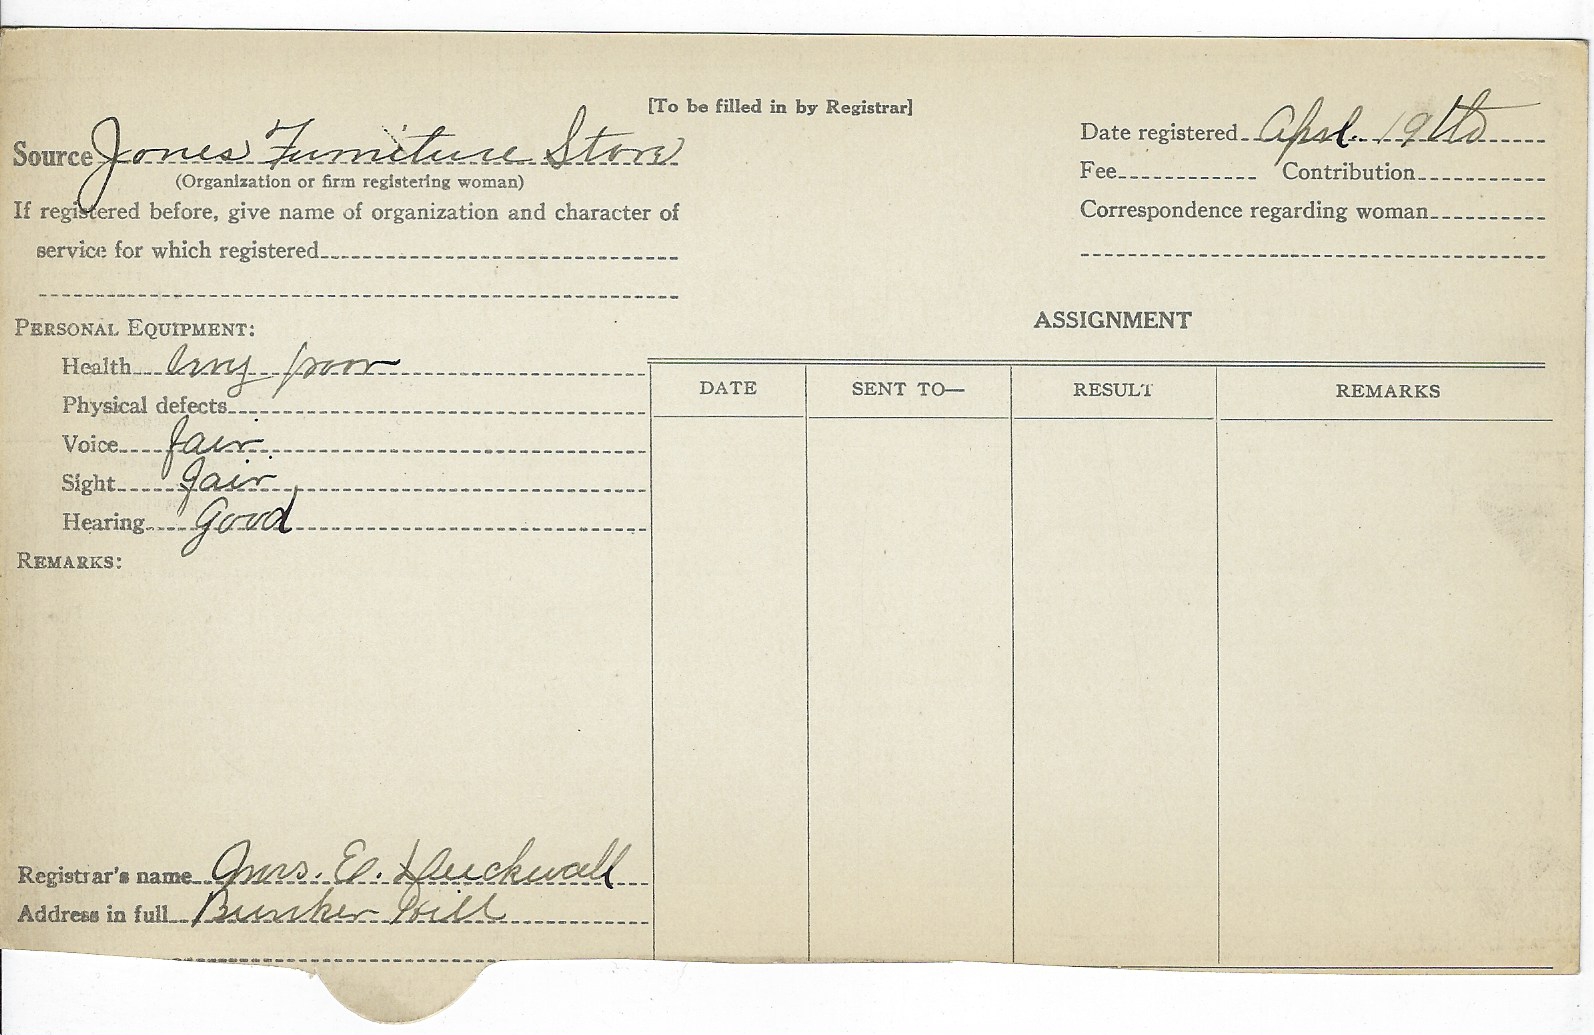 [To be filled in by Registrar]
Source Jones Furniture Store
(Organization or firm registering woman)
If registered before, give name of organization and character of
service for which registered
Date registered Aprl. 19th
Fee Contribution
Correspondence regarding woman
PERSONAL EQUIPMENT:
Health very poor
Physical defects
Voice fair
Sight fair
Hearing Good
REMARKS:
ASSIGNMENT
DATE SENT TO— RESULT REMARKS
Registrar's name Mrs. E. Duckwall
Address in full Bunker Hill